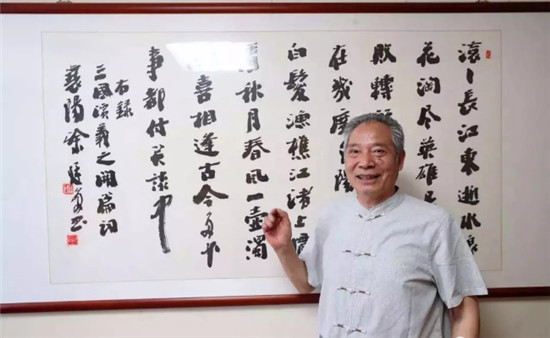 滚〻長江東逝水浪
花淘尽英雄
敗轉
在幾度
白髮漁樵江渚上慣
看秋月春風一壺濁
喜相逢古今多少
事都付笑談中
右録
三國演義之開篇詞
襄陽徐